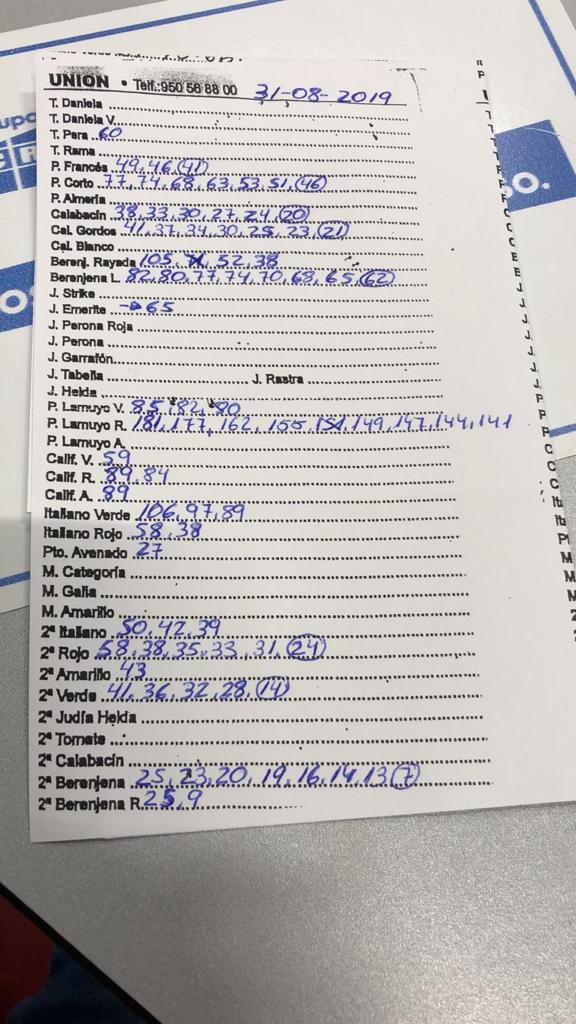 UNION • Telf.:950 58 88 00 31-08-2019
T. Daniela
T. Daniela V.
T. Pera 60
T. Rama
P. Francés 49, 46 (41)
P. Corto 77, 74, 68, 63, 53, 51, (46)
P. Almería
Calabacín 38, 33, 30, 27, 24, (20)
Cal. Gordos 41, 37, 34, 30, 25, 23, (21)
Cal. Blanco
Berenj. Rayada 105, 52, 38
Berenjena L. 82, 80, 77, 74, 70, 68, 65, (62)
J. Strike
J. Emerite → 65
J. Perona Roja
J. Perona
J. Garrafón
J. Tabella J. Rastra
J. Helda
P. Lamuyo V. 85, 82, 80
P. Lamuyo R. 181, 177, 162, 155, 151, 149, 147, 144, 141
P. Lamuyo A.
Calif. V. 59
Calif. R. 89, 84
Calif. A. 89
Italiano Verde 106, 97, 89
Italiano Rojo 58, 38
Pto. Avenado 27
M. Categoría
M. Galia
M. Amarillo
2ª Italiano 50, 42, 39
2ª Rojo 58, 38, 35, 33, 31, (24)
2ª Amarillo 43
2ª Verde 41, 36, 32, 28, (14)
2ª Judía Helda
2ª Tomate
2ª Calabacín
2ª Berenjena 25, 23, 20, 19, 16, 14, 13 (7)
2ª Berenjena R. 25, 9